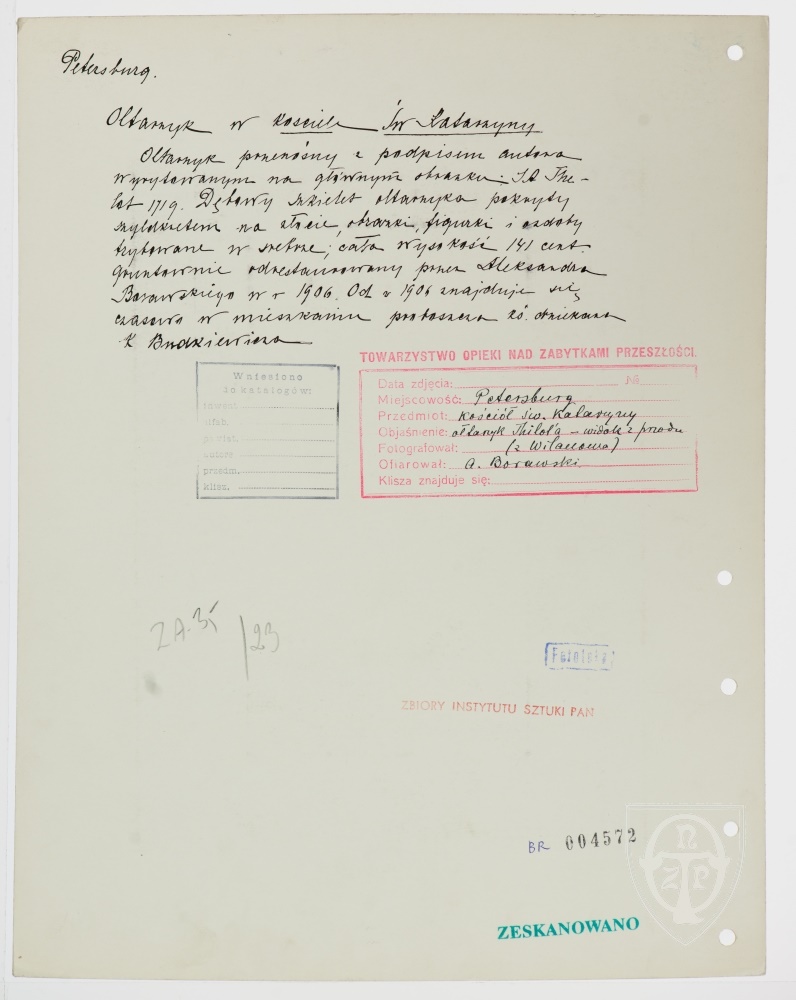 Petersburg.
Ołtarzyk w kościele Św Katarzyny
Ołtarzyk przenośny z podpisem autora
wyrytowanym na głównym obrazku: J.A The-
lot 1719. Dębowy szkielet ołtarzyka pokryty
szyldkretem na złocie, obrazki, figurki i ozdoby
trybowane w srebrze; cała wysokość 141 cent.
Gruntownie odrestaurowany przez Aleksandra
Borawskiego w r 1906. Od r 1906 znajduje się
czasowo w mieszkaniu proboszcza ks. dziekana
K Budkiewicza
Wniesiono
do katalogów:
towarz.
alfab.
przedm.
klisz.
TOWARZYSTWO OPIEKI NAD ZABYTKAMI PRZESZŁOŚCI.
Data zdjęcia: №
Miejscowość: Petersburg
Przedmiot: Kościół św. Katarzyny
Objaśnienie: ołtarzyk Thilot'a – widok z przodu
Fotografował: (z Wilanowa)
Ofiarował: A. Borawski
Klisza znajduje się:
ZA.35 /23
Fototeka
ZBIORY INSTYTUTU SZTUKI PAN
BR 004572
TNOZP
ZESKANOWANO